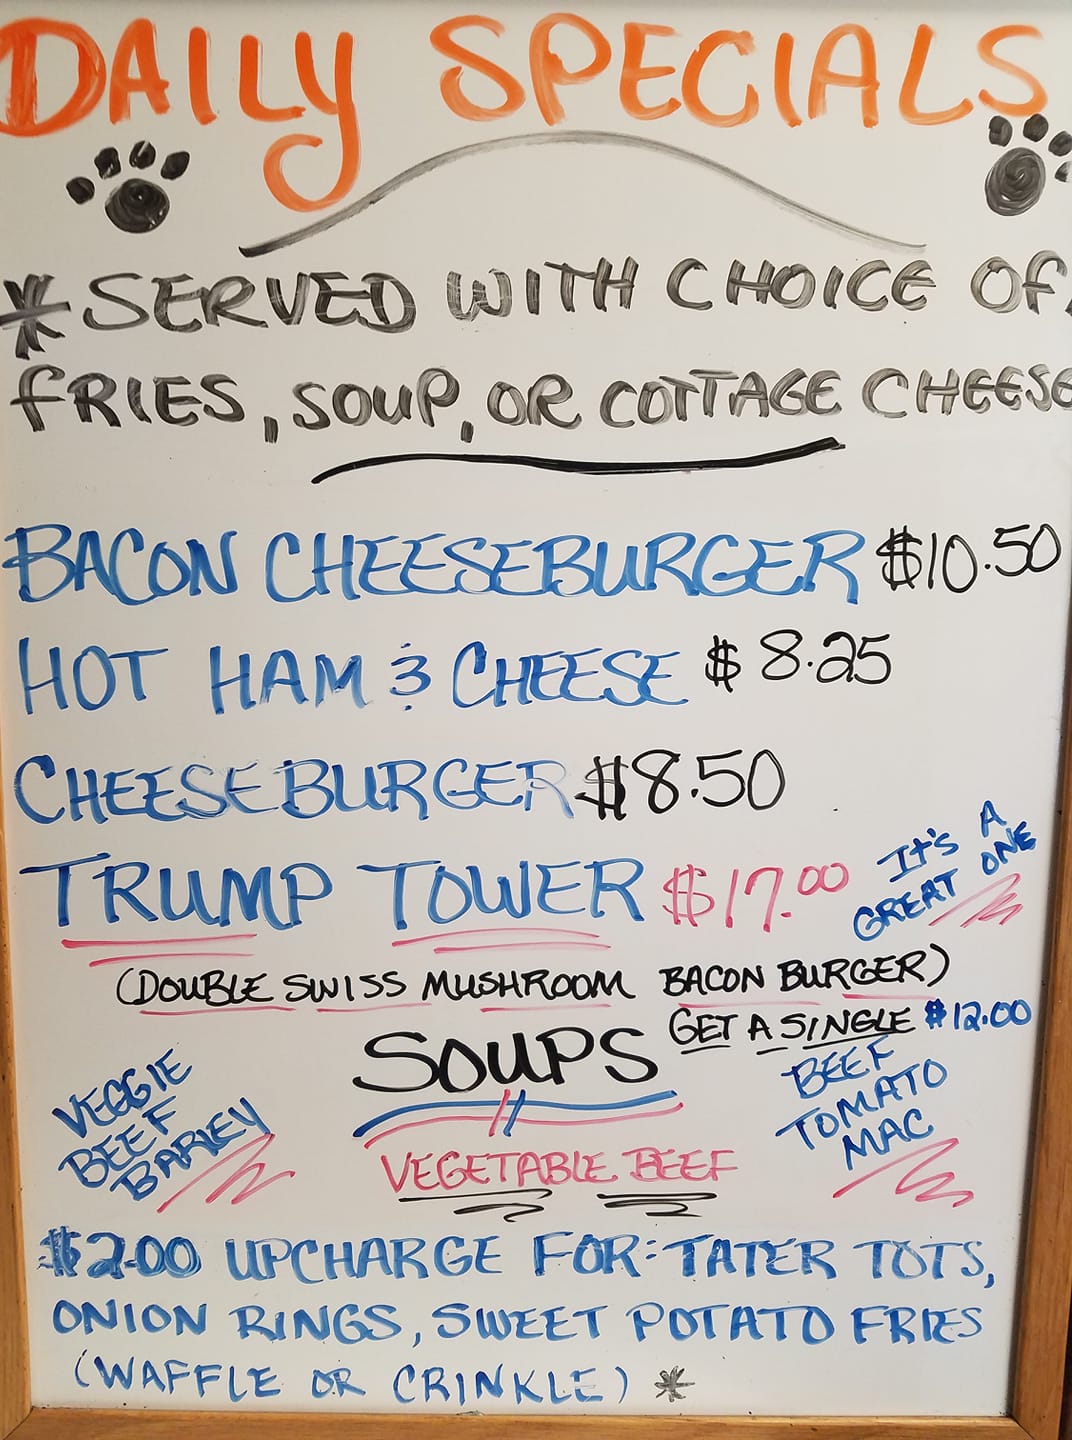 DAILY SPECIALS
* SERVED WITH CHOICE OF
FRIES, SOUP, OR COTTAGE CHEESE
BACON CHEESEBURGER $10.50
HOT HAM & CHEESE $8.25
CHEESEBURGER $8.50
TRUMP TOWER $17.00
IT'S A
GREAT ONE
(DOUBLE SWISS MUSHROOM BACON BURGER)
GET A SINGLE $12.00
SOUPS
VEGGIE
BEEF
BARLEY
VEGETABLE BEEF
BEEF
TOMATO
MAC
$2.00 UPCHARGE FOR: TATER TOTS,
ONION RINGS, SWEET POTATO FRIES
(WAFFLE OR CRINKLE) *